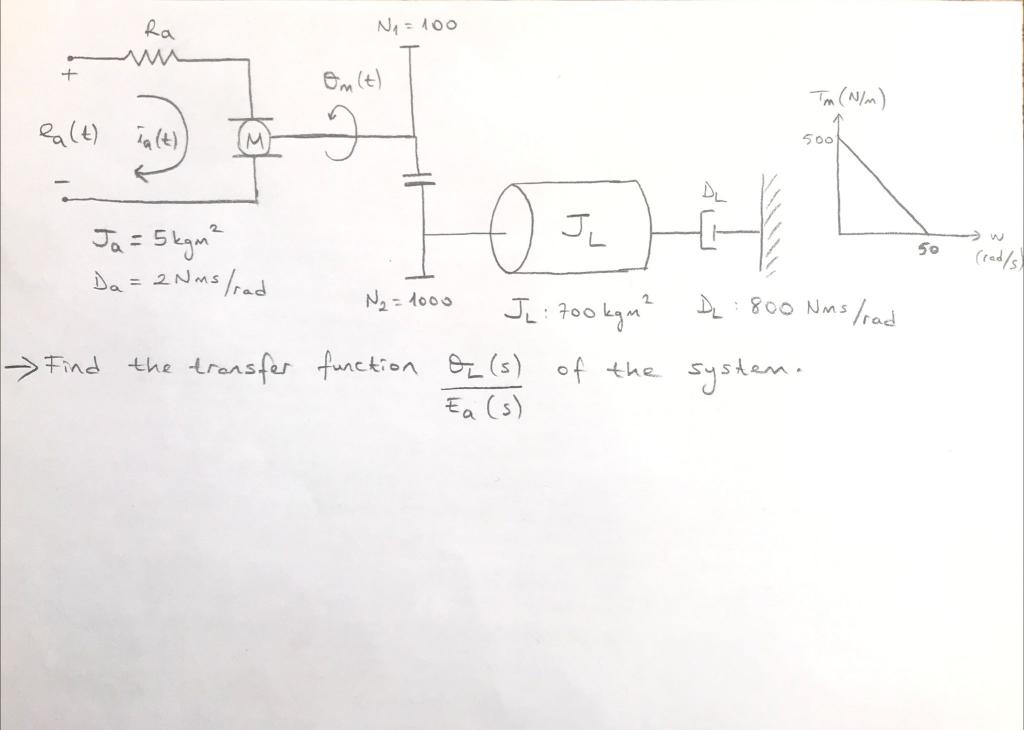 Ra
N1 = 100
+
θm(t)
Tm (N/m)
ea(t)
ia(t)
M
500
−
DL
JL
50
w
(rad/s)
Ja = 5 kgm²
Da = 2 Nms/rad
N2 = 1000
JL : 700 kgm²
DL : 800 Nms/rad
→ Find the transfer function θL(s) of the system.
Ea(s)